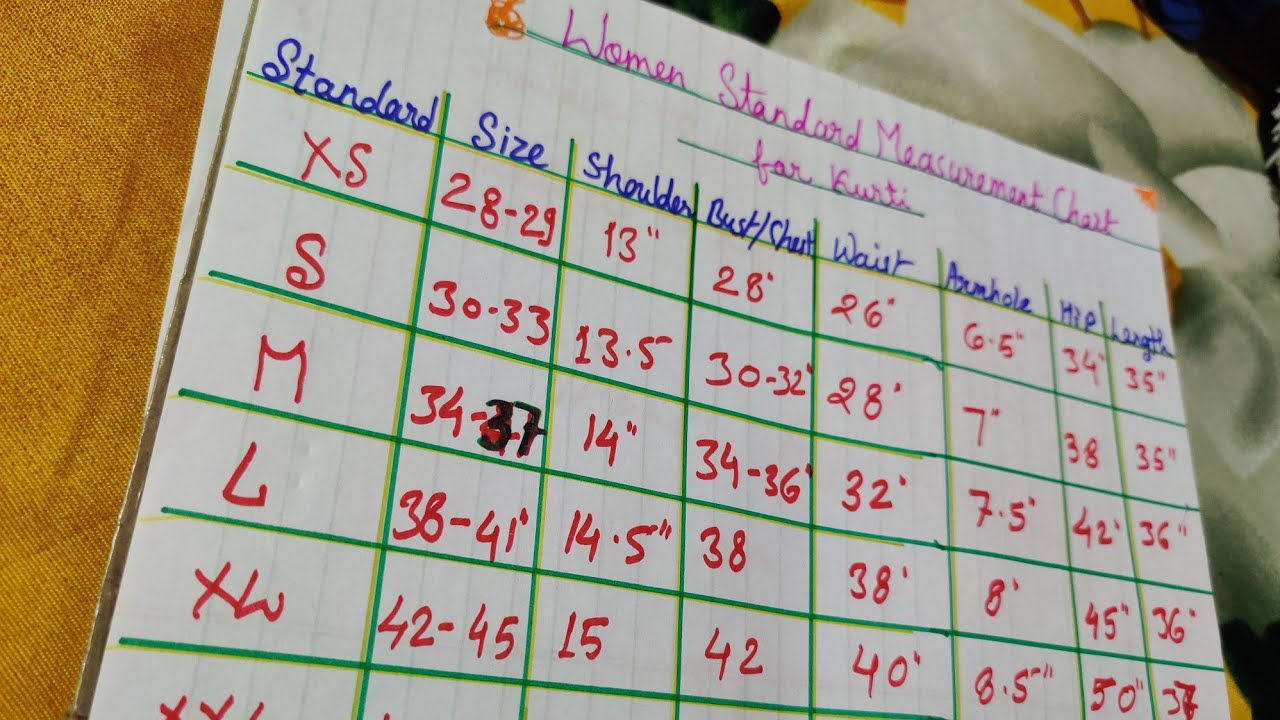 Women Standard Measurement Chart
for Kurti
Standard Size Shoulder Bust/Chest Waist Armhole Hip Length
XS 28-29 13" 28' 26' 6.5" 34' 35"
S 30-33 13.5 30-32' 28' 7" 38 35"
M 34-37 14" 34-36' 32' 7.5' 42' 36"
L 38-41' 14.5" 38 38' 8' 45" 36'
XL 42-45 15 42 40' 8.5" 50" 37
XXL